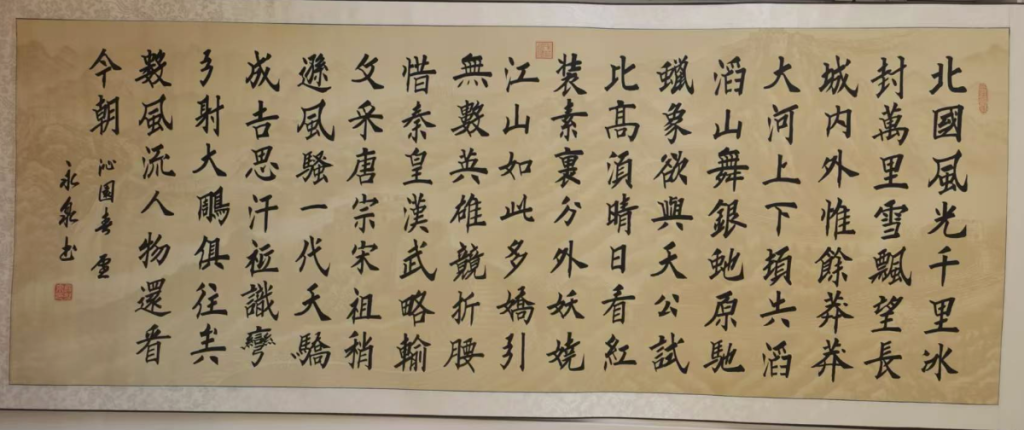 北國風光千里冰
封萬里雪飄望長
城内外惟餘莽莽
大河上下頓失滔
滔山舞銀蛇原馳
蠟象欲與天公試
比高須晴日看紅
裝素裹分外妖嬈
江山如此多嬌引
無數英雄競折腰
惜秦皇漢武略輸
文采唐宗宋祖稍
遜風騷一代天驕
成吉思汗衹識彎
弓射大鵰俱往矣
數風流人物還看
今朝
沁園春 雪
永泉书